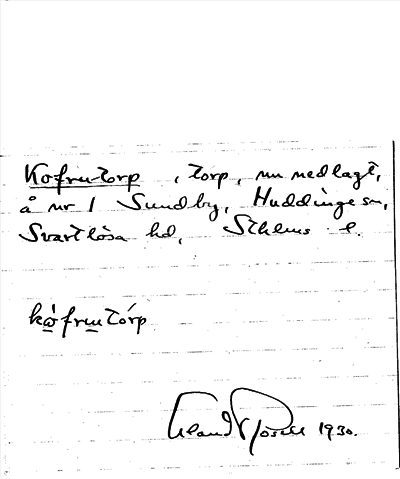 Kofrutorp, torp, nu nedlagt,
å nr 1 Sundby, Huddinge sn,
Svartlösa hd, Sthlms l.
kófrutórp
1930.